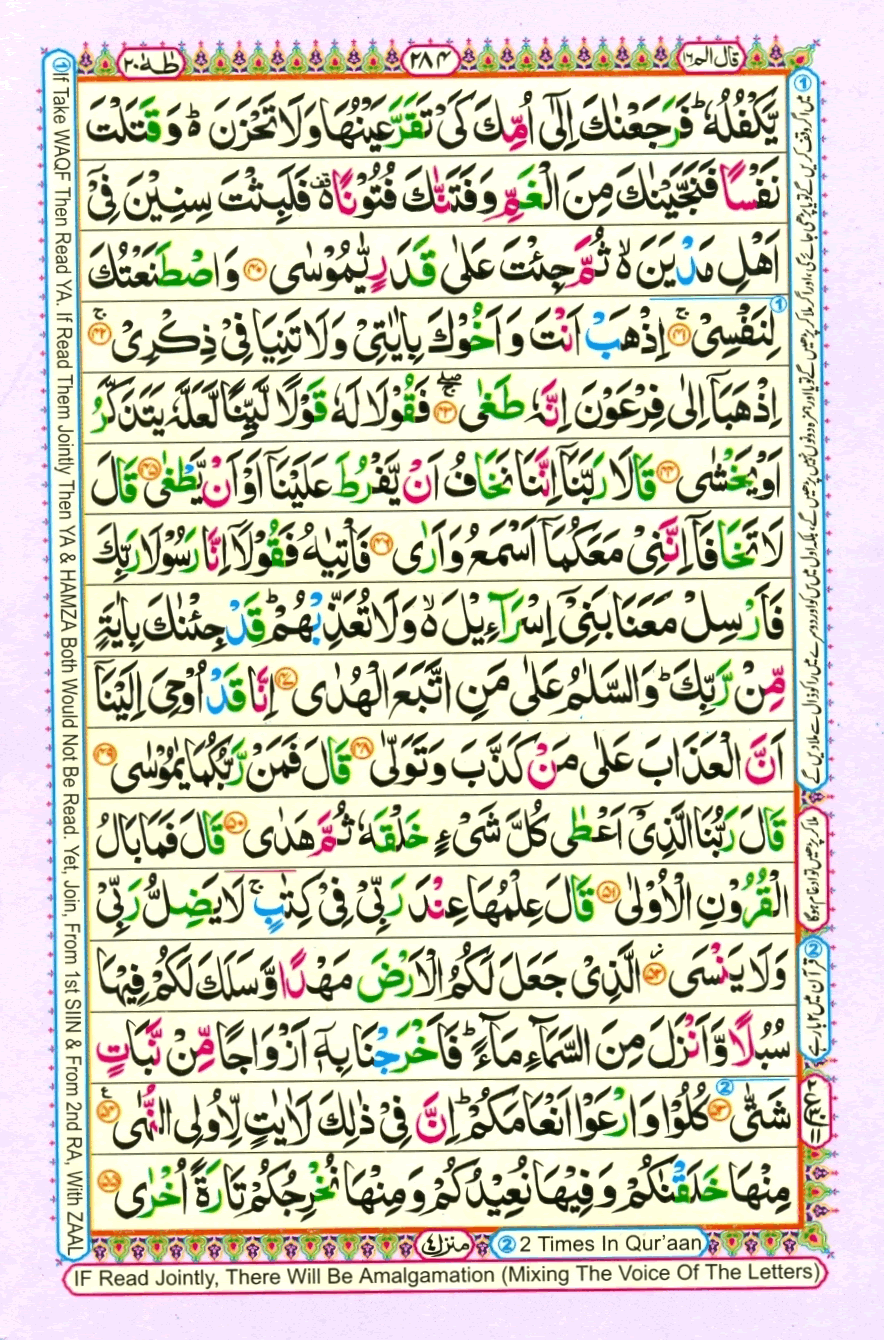 قال الم ١٦
٢٨٤
طٰهٰ ٢٠
يَّكْفُلُهٗ ؕ فَرَجَعْنٰكَ اِلٰٓى اُمِّكَ كَىْ تَقَرَّ عَيْنُهَا وَلَا تَحْزَنَ ؕ۬ وَ قَتَلْتَ
نَفْسًا فَنَجَّيْنٰكَ مِنَ الْغَمِّ وَ فَتَنّٰكَ فُتُوْنًا ۬۫ فَلَبِثْتَ سِنِيْنَ فِىْٓ
اَهْلِ مَدْيَنَ ۙ۬ ثُمَّ جِئْتَ عَلٰى قَدَرٍ يّٰمُوْسٰى ﴿۴۰﴾ وَ اصْطَنَعْتُكَ
لِنَفْسِىْ ۚ﴿۴۱﴾ اِذْهَبْ اَنْتَ وَ اَخُوْكَ بِاٰيٰتِىْ وَلَا تَنِيَا فِىْ ذِكْرِىْ ۚ﴿۴۲﴾
اِذْهَبَاۤ اِلٰى فِرْعَوْنَ اِنَّهٗ طَغٰى ۚۖ﴿۴۳﴾ فَقُوْلَا لَهٗ قَوْلًا لَّيِّنًا لَّعَلَّهٗ يَتَذَكَّرُ
اَوْ يَخْشٰى ﴿۴۴﴾ قَالَا رَبَّنَاۤ اِنَّنَا نَخَافُ اَنْ يَّفْرُطَ عَلَيْنَاۤ اَوْ اَنْ يَّطْغٰى ﴿۴۵﴾ قَالَ
لَا تَخَافَاۤ اِنَّنِىْ مَعَكُمَاۤ اَسْمَعُ وَ اَرٰى ﴿۴۶﴾ فَاْتِيٰهُ فَقُوْلَاۤ اِنَّا رَسُوْلَا رَبِّكَ
فَاَرْسِلْ مَعَنَا بَنِىْۤ اِسْرَآءِيْلَ ۙ۬ وَلَا تُعَذِّبْهُمْ ؕ قَدْ جِئْنٰكَ بِاٰيَةٍ
مِّنْ رَّبِّكَ ؕ وَالسَّلٰمُ عَلٰى مَنِ اتَّبَعَ الْهُدٰى ﴿۴۷﴾ اِنَّا قَدْ اُوْحِىَ اِلَيْنَاۤ
اَنَّ الْعَذَابَ عَلٰى مَنْ كَذَّبَ وَ تَوَلّٰى ﴿۴۸﴾ قَالَ فَمَنْ رَّبُّكُمَا يٰمُوْسٰى ﴿۴۹﴾
قَالَ رَبُّنَا الَّذِىْۤ اَعْطٰى كُلَّ شَىْءٍ خَلْقَهٗ ثُمَّ هَدٰى ﴿۵۰﴾ قَالَ فَمَا بَالُ
الْقُرُوْنِ الْاُوْلٰى ﴿۵۱﴾ قَالَ عِلْمُهَا عِنْدَ رَبِّىْ فِىْ كِتٰبٍ ۚ لَا يَضِلُّ رَبِّىْ
وَلَا يَنْسَى ۙ﴿۵۲﴾ الَّذِىْ جَعَلَ لَكُمُ الْاَرْضَ مَهْدًا وَّ سَلَكَ لَكُمْ فِيْهَا
سُبُلًا وَّ اَنْزَلَ مِنَ السَّمَآءِ مَآءً ؕ فَاَخْرَجْنَا بِهٖۤ اَزْوَاجًا مِّنْ نَّبَاتٍ
شَتّٰى ﴿۵۳﴾ كُلُوْا وَارْعَوْا اَنْعَامَكُمْ ؕ اِنَّ فِىْ ذٰلِكَ لَاٰيٰتٍ لِّاُولِى النُّهٰى ﴿۵۴﴾
مِنْهَا خَلَقْنٰكُمْ وَ فِيْهَا نُعِيْدُكُمْ وَ مِنْهَا نُخْرِجُكُمْ تَارَةً اُخْرٰى ﴿۵۵﴾
منزل ٤
② 2 Times In Qur'aan
IF Read Jointly, There Will Be Amalgamation (Mixing The Voice Of The Letters)
① If Take WAQF Then Read YA. If Read Them Jointly Then YA & HAMZA Both Would Not Be Read. Yet, Join, From 1st SIIN & From 2nd RA, With ZAAL
ملا کر پڑھیں تو ادغام ہوگا
② قرآن میں ۲ بار ہے